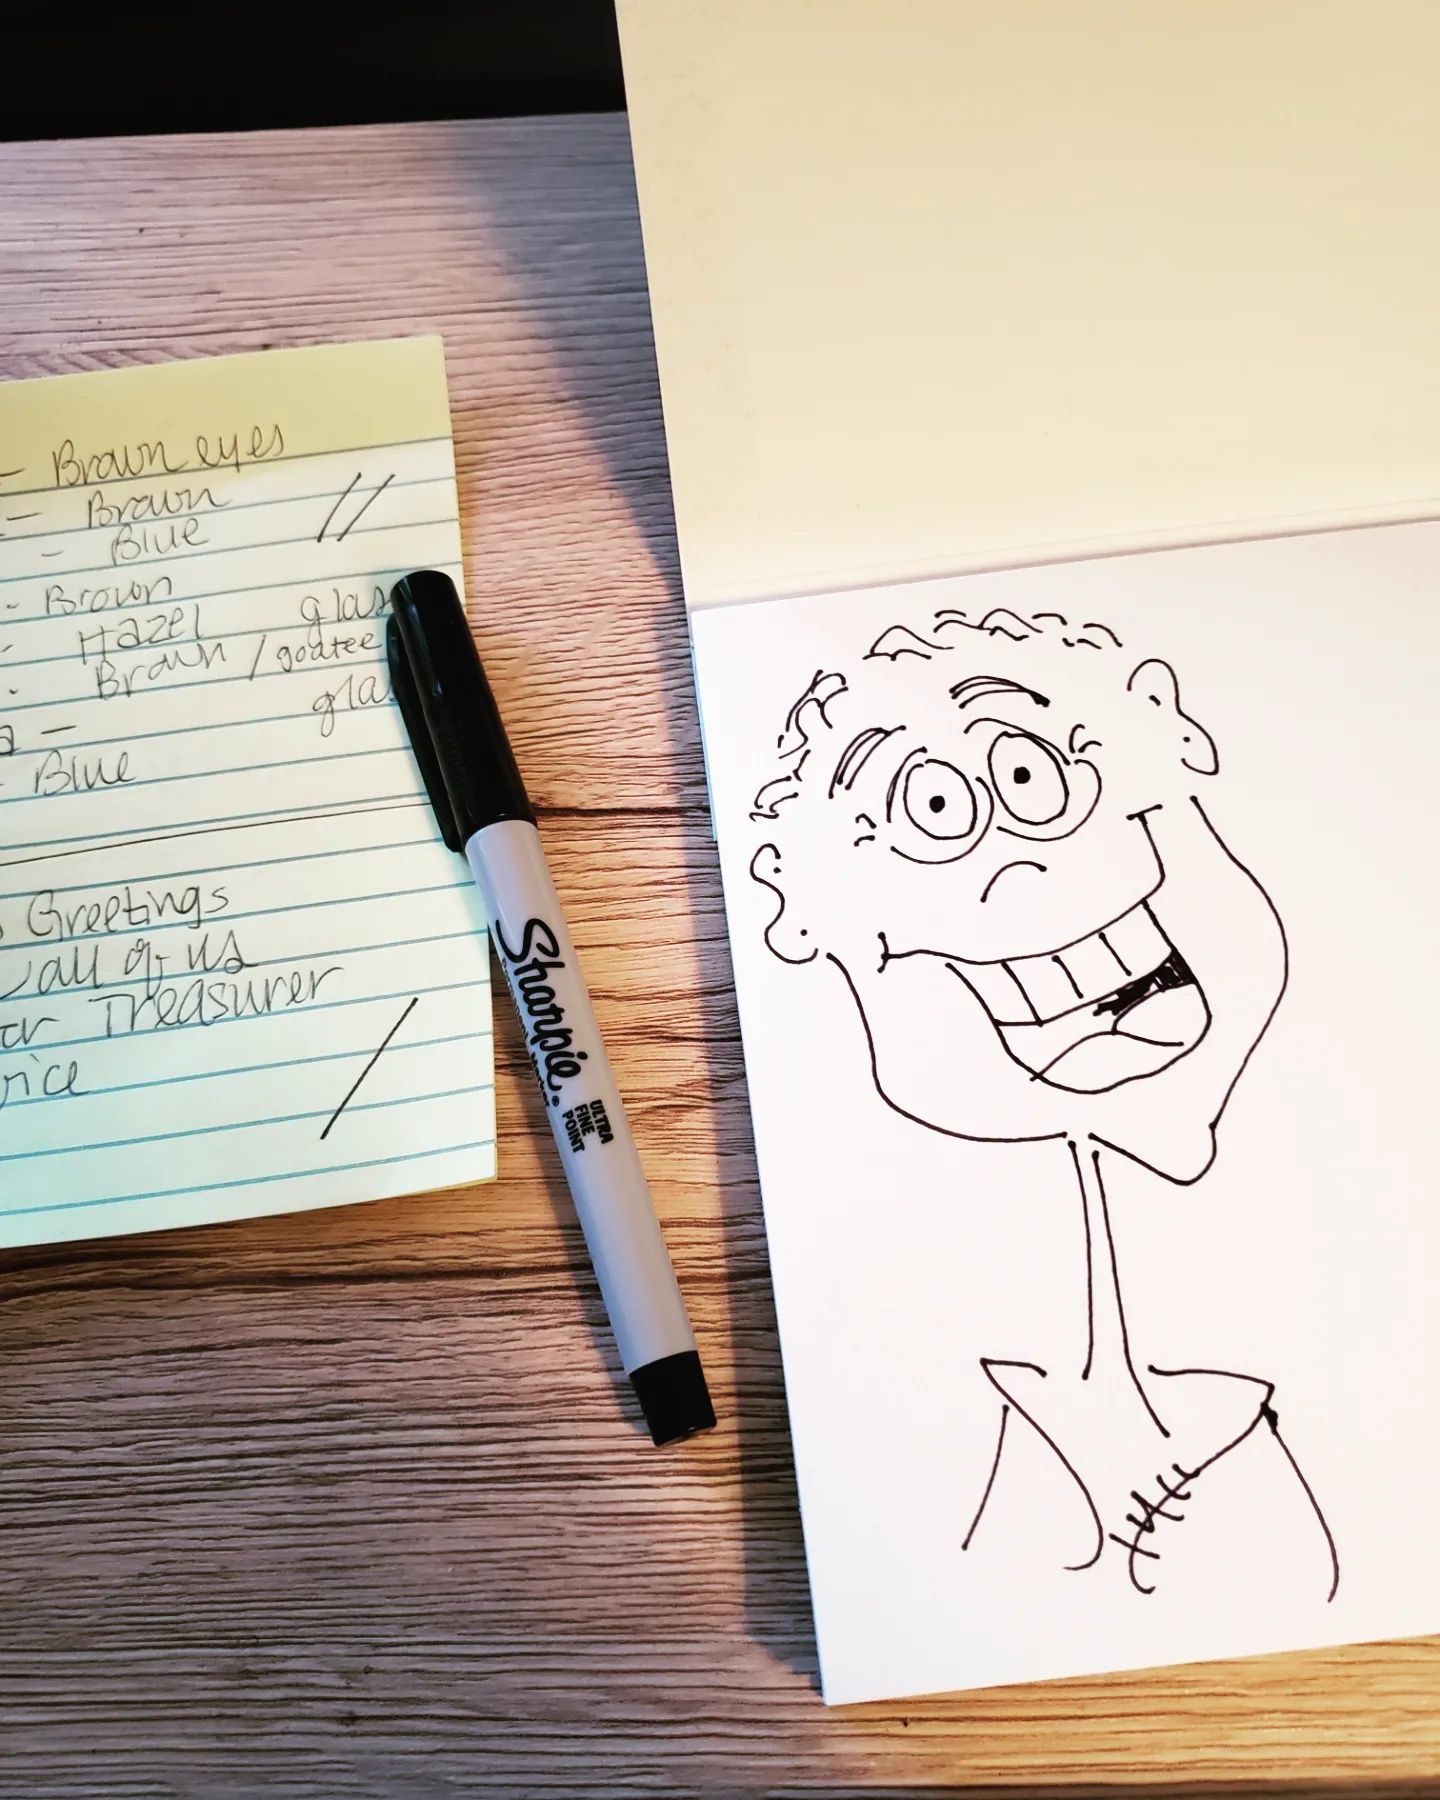 - Brown eyes
- Brown
- Blue
- Brown
- Hazel glas
- Brown / goatee
glas
a -
- Blue
Greetings
all of us
or Treasurer
Sharpie®
ULTRA
FINE
POINT